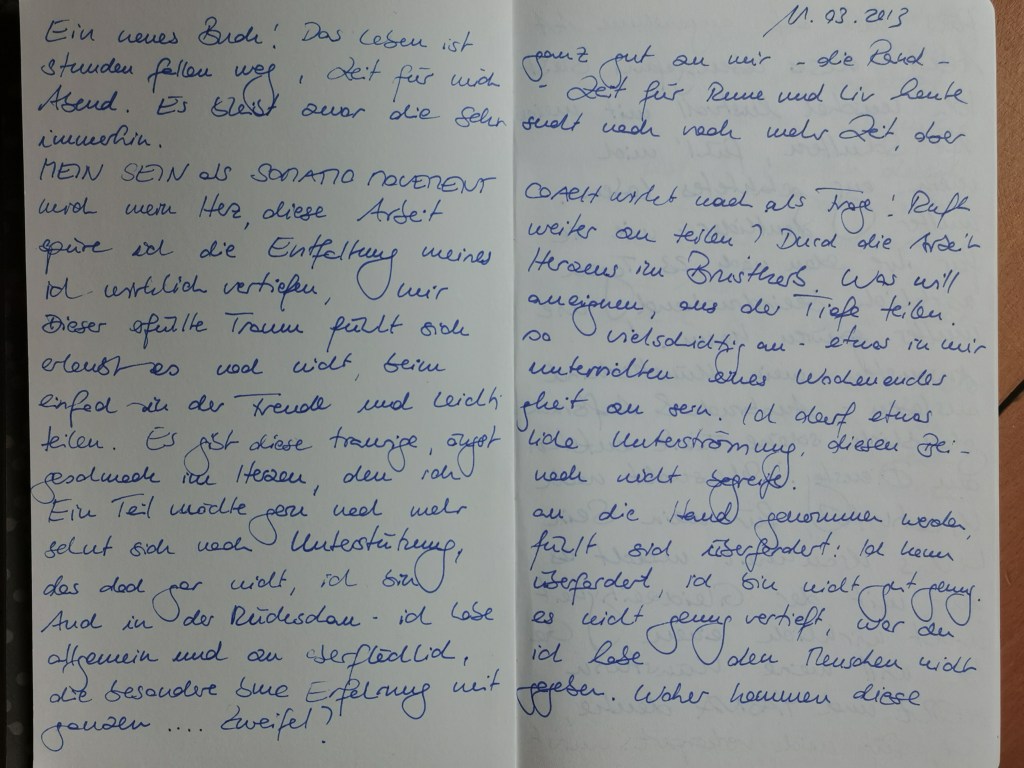 11.03.2013
Ein neues Buch! Das Leben ist ganz gut zu mir - die Rand-
stunden fallen weg, Zeit für mich - Zeit für Rune und Liv heute
Abend. Es bleibt zwar die Sehn sucht nach noch mehr Zeit, aber
immerhin.
MEIN SEIN als SOMATIC MOVEMENT COACH wirkt nach als Frage! Ruft
mich mein Herz, diese Arbeit weiter zu teilen? Durch die Arbeit
spüre ich die Entfaltung meines Herzens im Brustkorb. Was will
ich wirklich vertiefen, mir aneignen, aus der Tiefe teilen.
Dieser erfüllte Traum fühlt sich so vielschichtig an - etwas in mir
erlaubt es noch nicht, beim unterrichten eines Wochenendes
einfach in der Freude und Leichtig gkeit zu sein. Ich darf etwas
teilen. Es gibt diese traurige, ängst liche Unterströmung, diesen Bei-
geschmack im Herzen, den ich noch nicht begreife.
Ein Teil möchte gern noch mehr an die Hand genommen werden,
sehnt sich nach Unterstützung, fühlt sich überfordert: Ich kann
das doch gar nicht, ich bin überfordert ich bin nicht gut genug.
Auch in der Rückschau - ich habe es nicht genug vertieft, war zu
allgemein und zu oberflächlich, ich habe den Menschen nicht
die besondere bmc Erfahrung mit gegeben. Woher kommen diese
ganzen .... Zweifel?